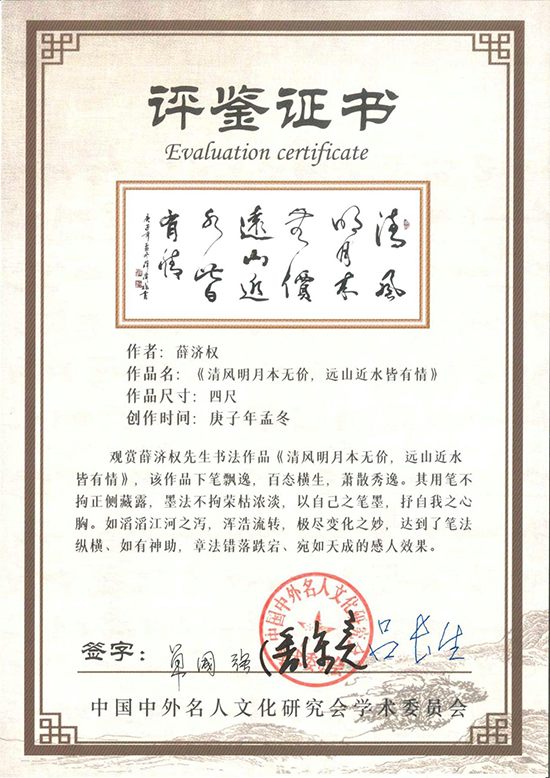 评鉴证书
Evaluation certificate
清風
明月本
無價
遠山近
水皆
有情
庚子年孟冬薛濟權書
作者：薛济权
作品名：《清风明月本无价，远山近水皆有情》
作品尺寸：四尺
创作时间：庚子年孟冬
观赏薛济权先生书法作品《清风明月本无价，远山近水
皆有情》，该作品下笔飘逸，百态横生，萧散秀逸。其用笔不
拘正侧藏露，墨法不拘荣枯浓淡，以自己之笔墨，抒自我之心
胸。如滔滔江河之泻，浑浩流转，极尽变化之妙，达到了笔法
纵横、如有神助，章法错落跌宕、宛如天成的感人效果。
中国中外名人文化研究会
签字：單國强 吕长生
中国中外名人文化研究会学术委员会